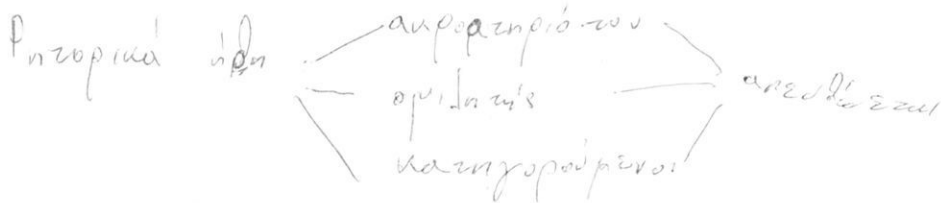 Ρητορικά ήθη
ακροατηριό του
ομιλητής
κατηγορούμενοι
απευθύνεται